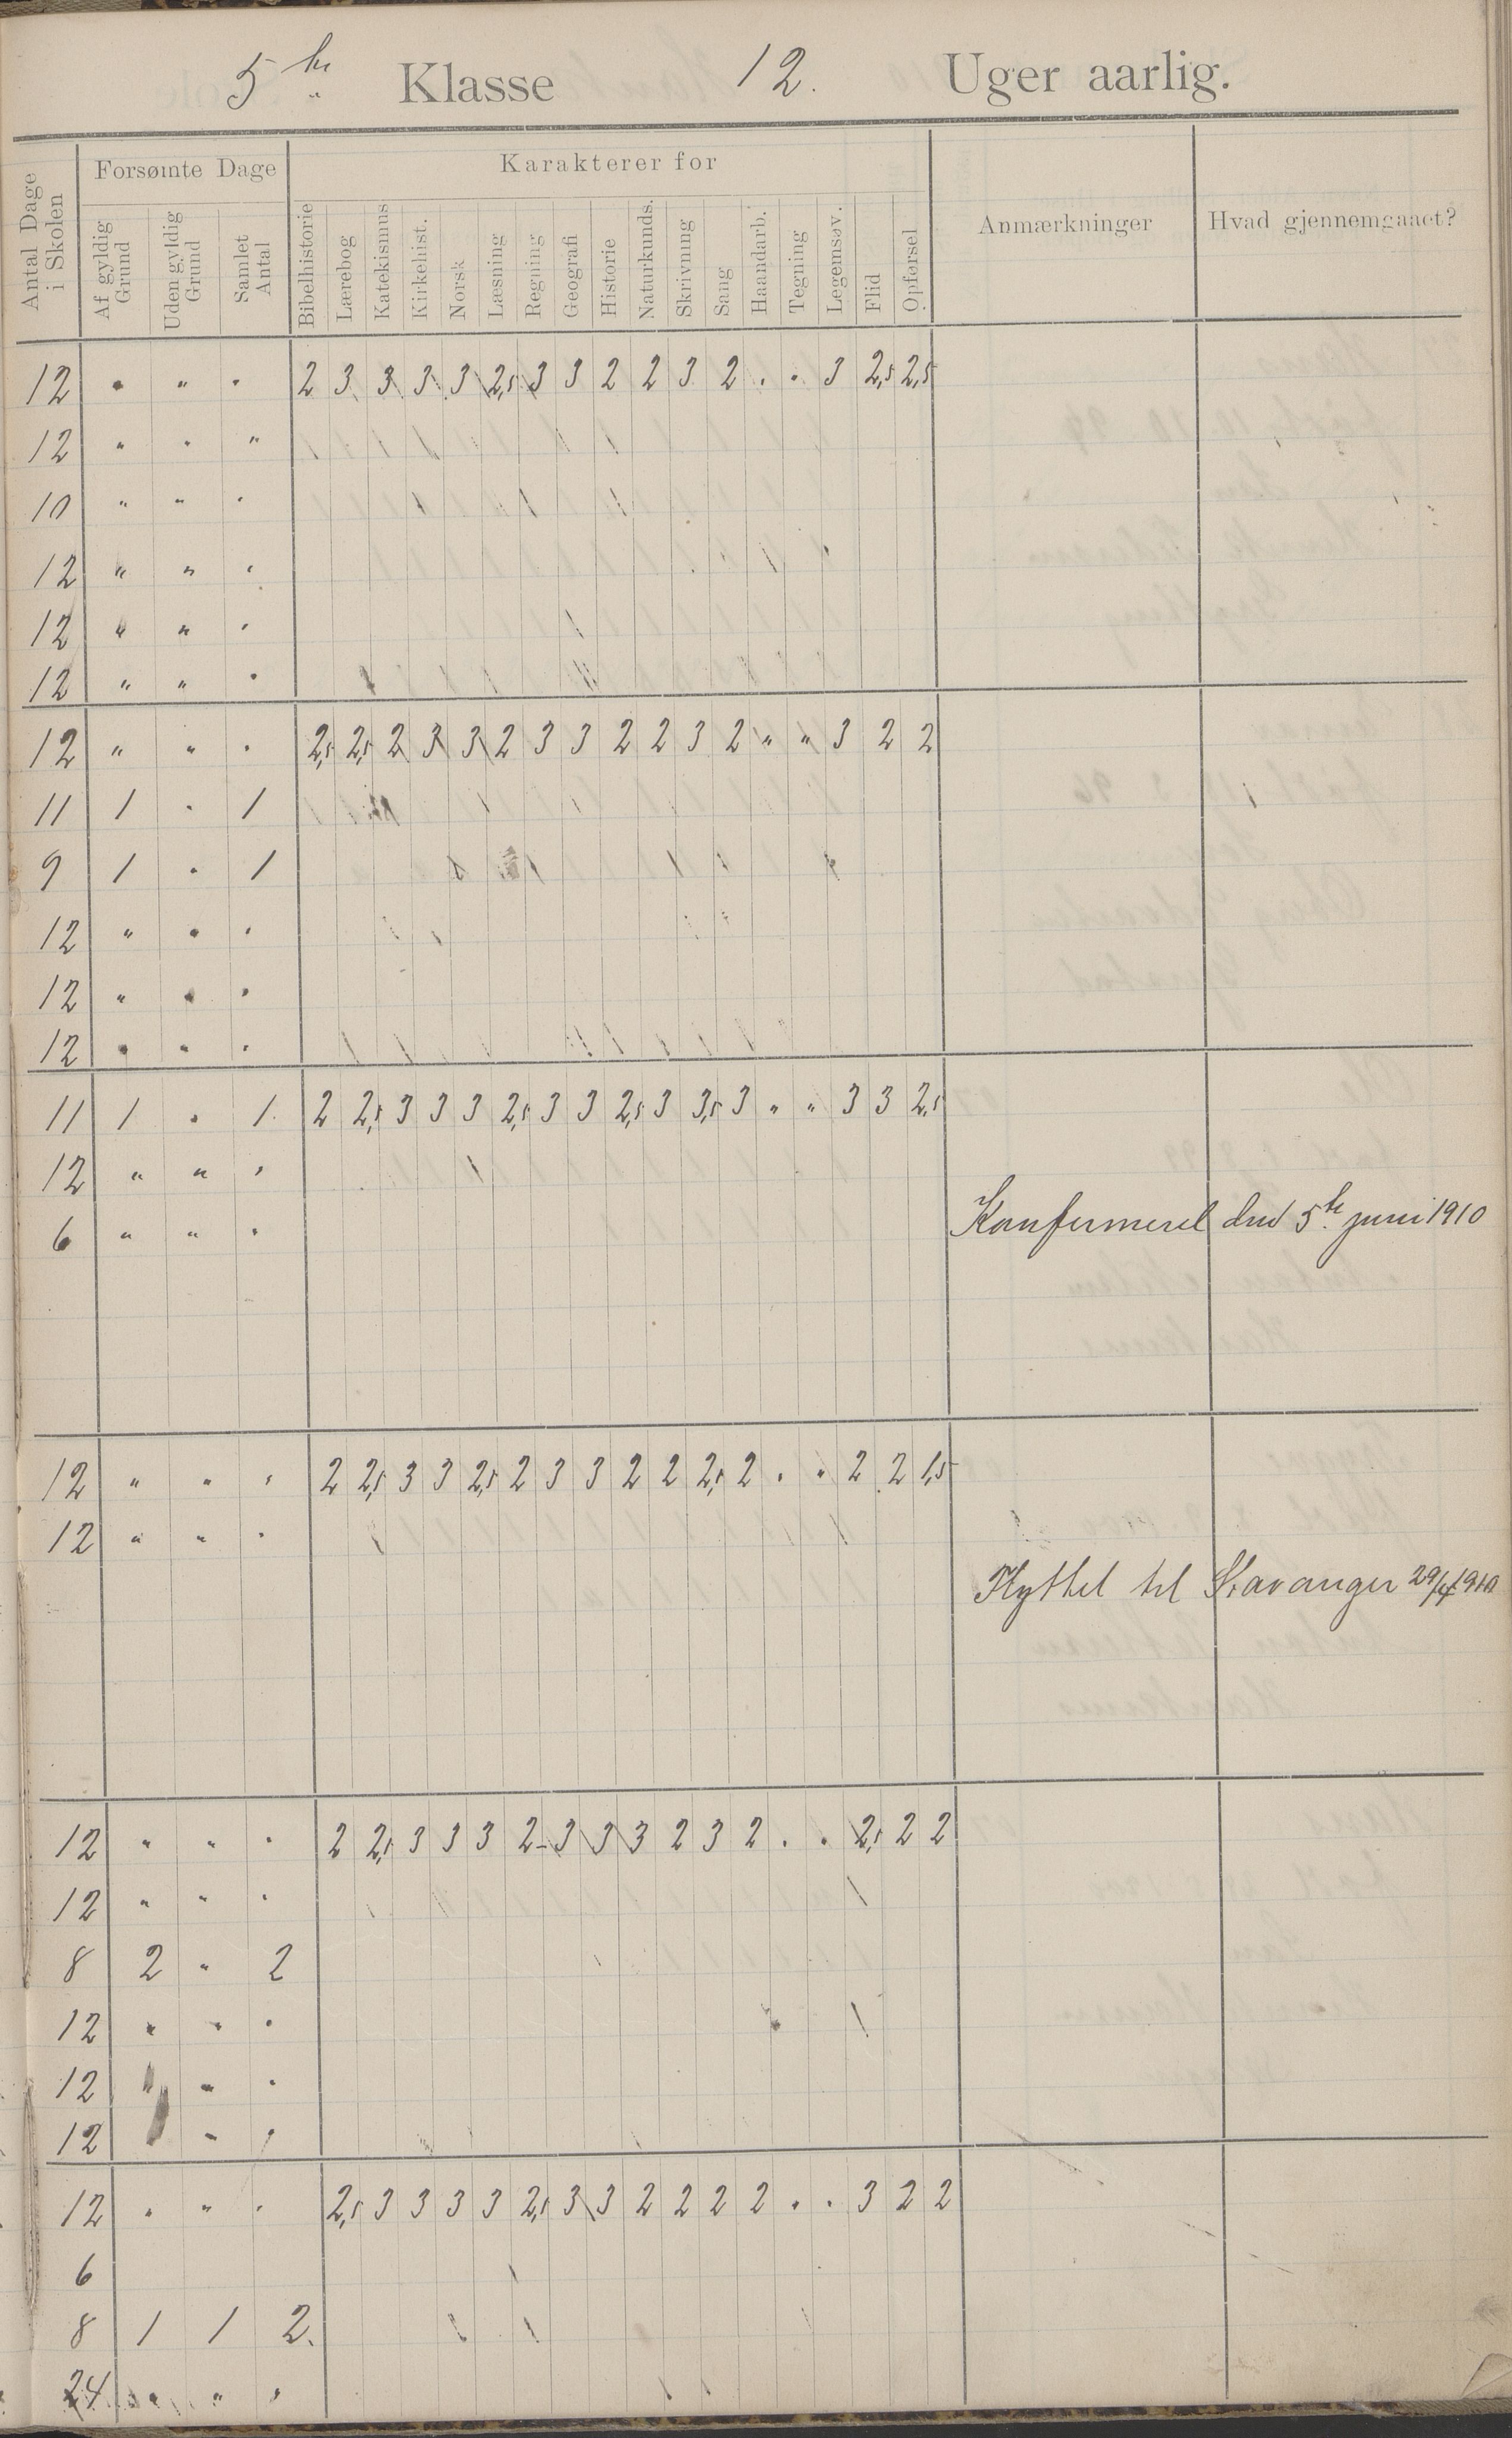 5te Klasse 12. Uger aarlig.
Antal Dage i Skolen
Forsømte Dage
Af gyldig Grund
Uden gyldig Grund
Samlet Antal
Karakterer for
Bibelhistorie Lærebog Katekismus Kirkehist. Norsk Læsning Regning Geografi Historie Naturkunds. Skrivning Sang Haandarb. Tegning Legemsøv. Flid Opførsel
Anmærkninger
Hvad gjennemgaaet?
12 " " " 2 3 3 3 3 2,5 3 3 2 2 3 2 " " 3 2,5 2,5
12 " " "
10 " " "
12 " " "
12 " " "
12 " " "
12 " " " 2,5 2,5 2 3 3 2 3 3 2 2 3 2 " " 3 2 2
11 1 " 1
9 1 " 1
12 " " "
12 " " "
12 " " "
11 1 " 1 2 2,5 3 3 3 2,5 3 3 2,5 3 3,5 3 " " 3 3 2,5
12 " " "
6 " " " Konfirmeret den 5te juni 1910
12 " " " 2 2,5 3 3 2,5 2 3 3 2 2 2,5 2 " " 2 2 1,5
12 " " "
Flyttet til Stavanger 29/4 1910
12 " " " 2 2,5 3 3 3 2 3 3 3 2 3 2 " " 2,5 2 2
12 " " "
8 2 " 2
12 " " "
12 " " "
12 " " "
12 " " " 2,5 3 3 3 3 2,5 3 3 2 2 2 2 " " 3 2 2
6
8 1 1 2.
24 " " "